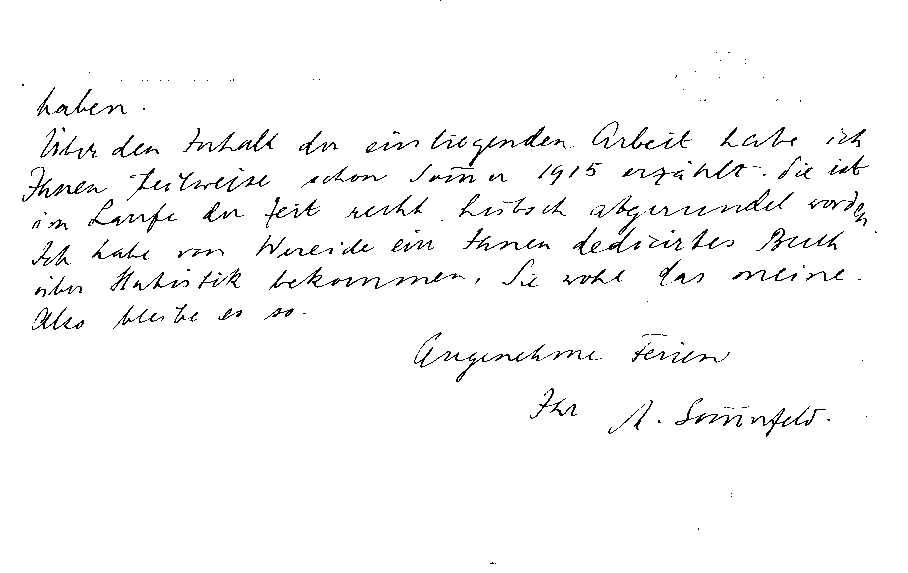 haben.
Über den Inhalt der einliegenden Arbeit habe ich
Ihnen teilweise schon Som̅er 1915 erzählt. Sie ist
im Laufe der Zeit recht hübsch abgerundet worden.
Ich habe von Wereide ein Ihnen dedicirtes Buch
über Statistik bekommen, Sie wohl das meine.
Also bleibe es so.
Angenehme Ferien
Ihr A. Som̅erfeld.